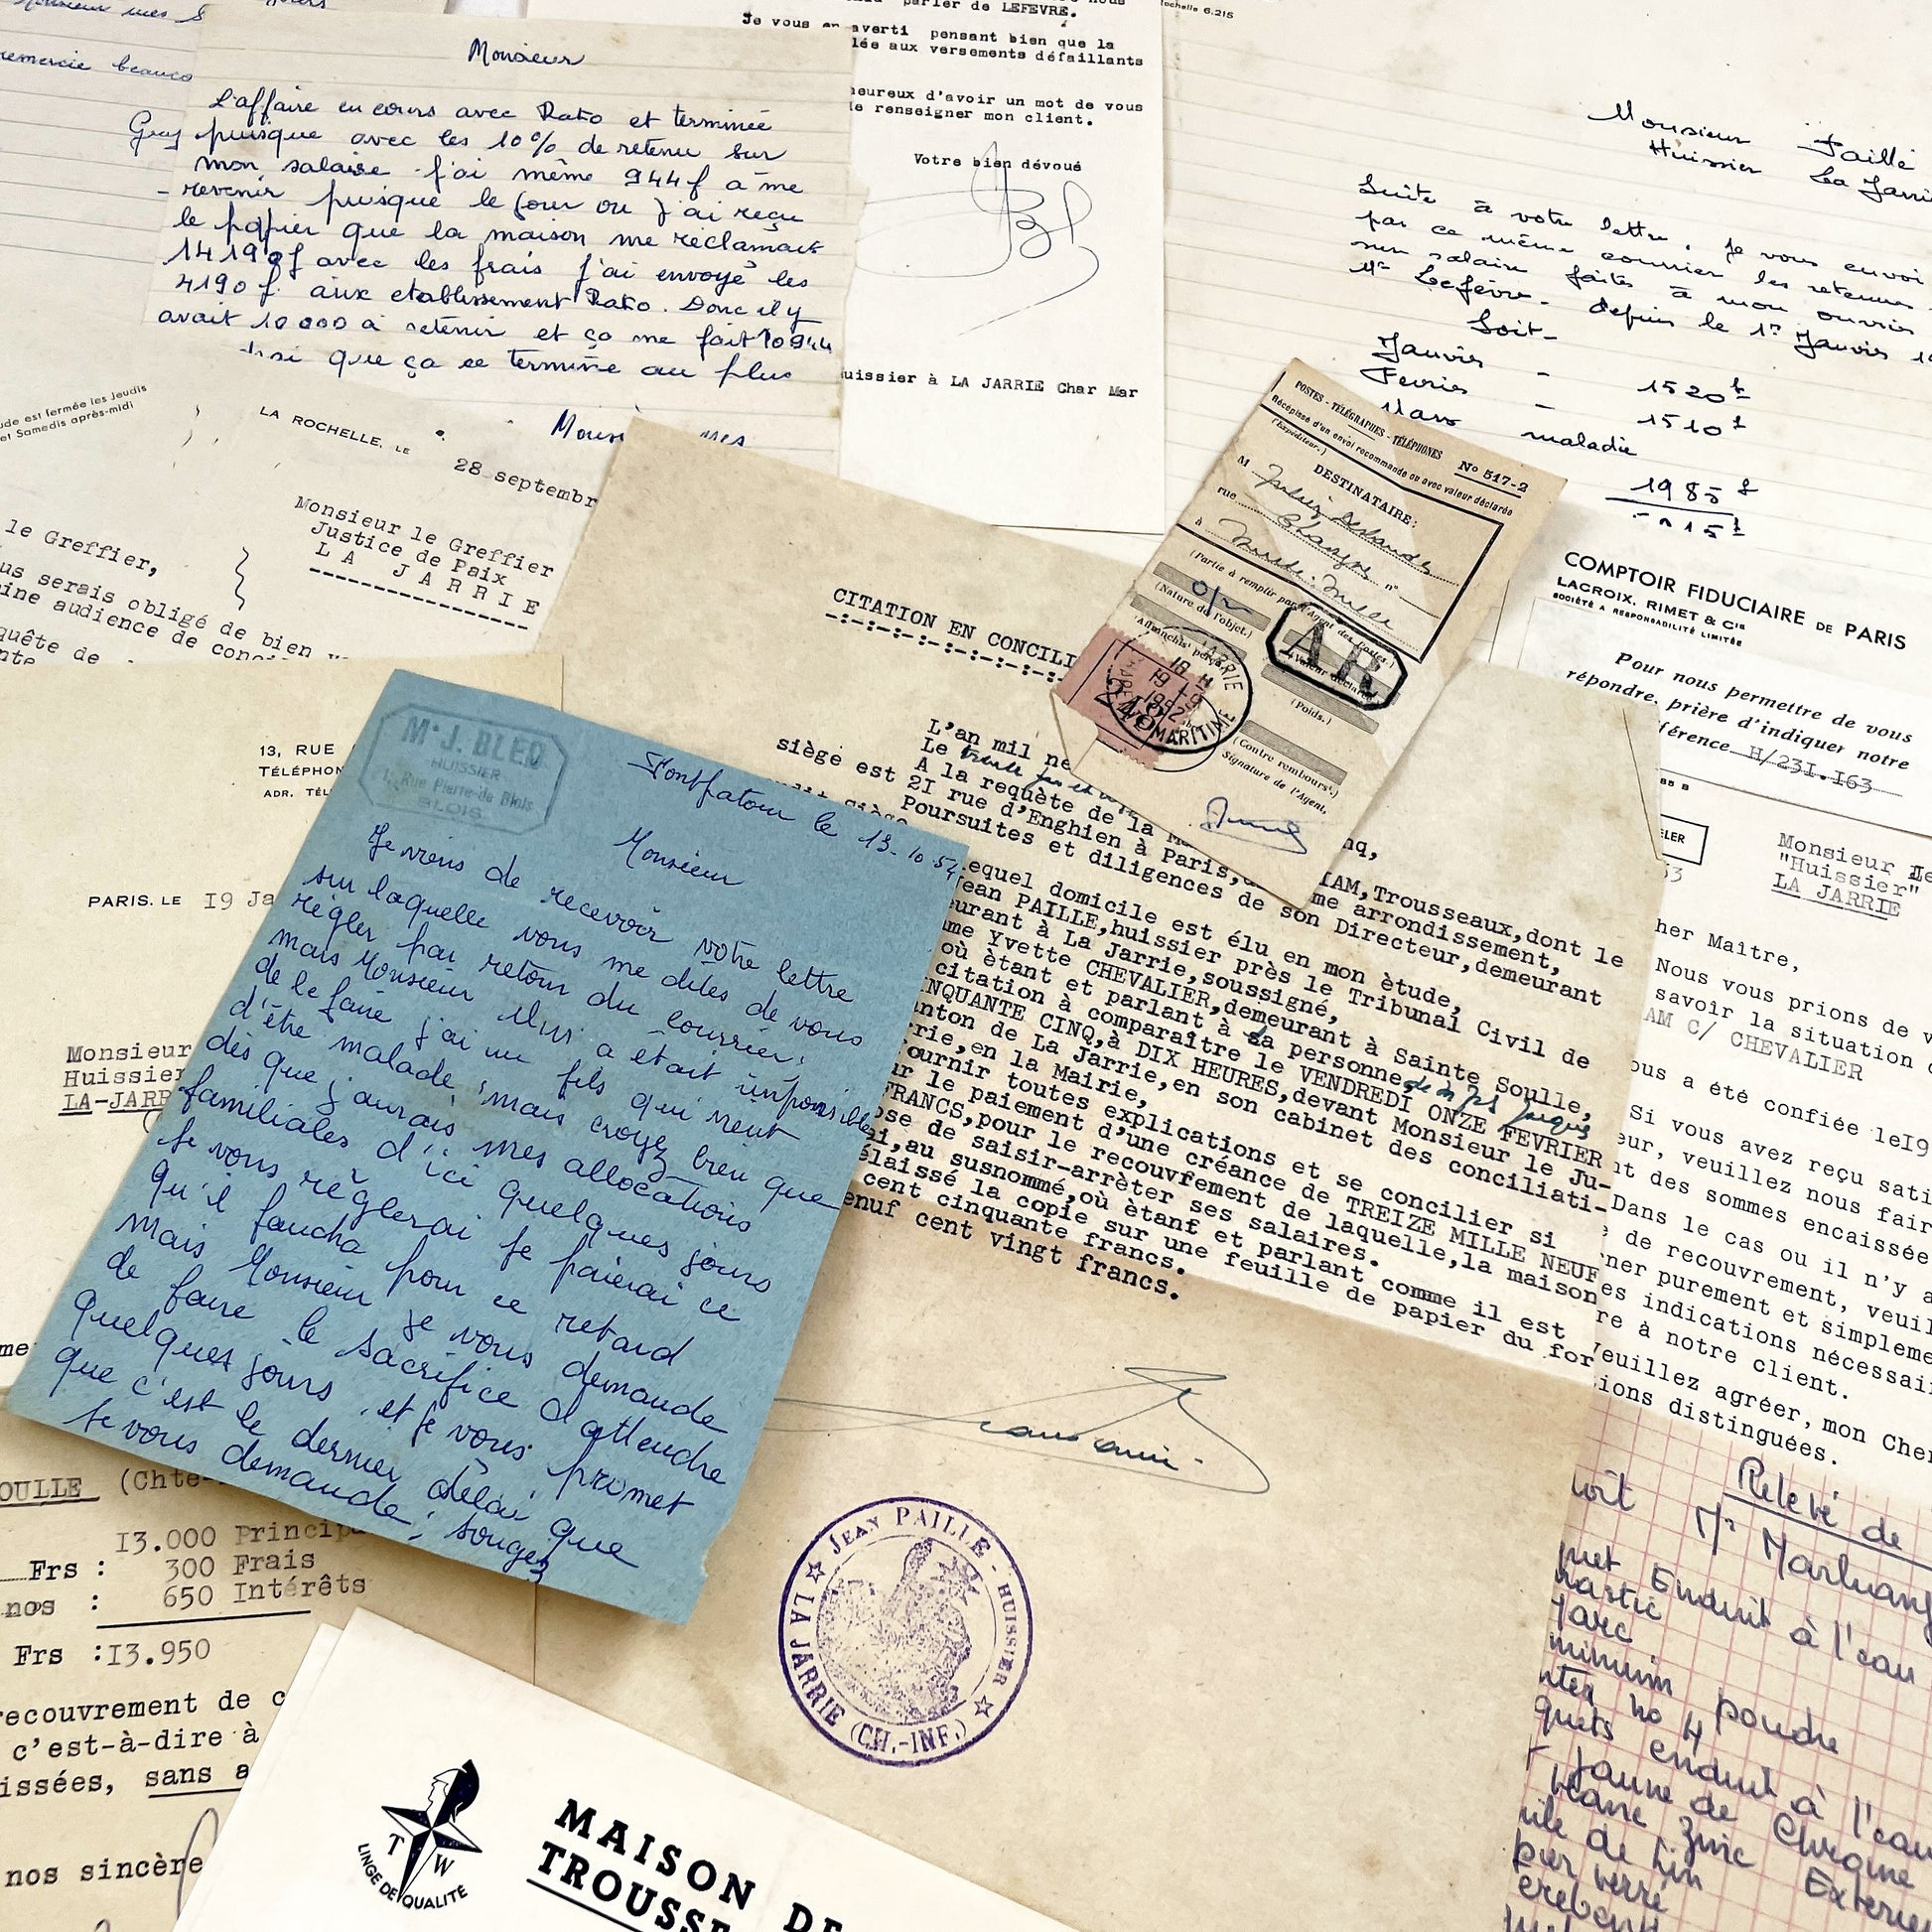 remercie beauco
Monsieur
L'affaire en cours avec Rato et terminée
puisque avec les 10% de retenu sur
mon salaise j'ai même 944f à me
revenir puisque le jour ou j'ai reçu
le papier que la maison me réclamait
14190f avec les frais j'ai envoyé les
4190f aux etablissement Rato. Donc il y
avait 10000 à retenir et ça me fait 10944
que ça ce termine au plus
parler de LEFEVRE.
Je vous en averti pensant bien que la
lée aux versements défaillants
eureux d'avoir un mot de vous
e renseigner mon client.
Votre bien dévoué
uissier à LA JARRIE Char Mar
ochelle 6.215
Monsieur Paillé
Huissier La Jarri
Suite à votre lettre, je vous envoi
par ce même courrier les retenues
sur salaire faites à mon ouvrier
Mr Lefèvre - depuis le 1er Janvier
Soit -
Janvier - 1520f
Fevrier - 1510f
Mars maladie
1985f
ude est fermée les Jeudis
et Samedis après-midi
LA ROCHELLE, LE
28 septembr
Monsieur le Greffier
Justice de Paix
LA JARRIE
le Greffier,
us serais obligé de bien v
ine audience de conci
quête de
POSTES - TÉLÉGRAPHES - TÉLÉPHONES
Récépissé d'un envoi recommandé ou avec valeur déclarée
N° 517-2
(Expéditeur.)
DESTINATAIRE:
M
rue
n°
à
(Partie à remplir par l'Agent des Postes.)
(Nature de l'objet.)
(Valeur déclarée.)
AR
(Affrancht perçu.)
(Poids.)
18 H
1952
MARITIME
(Contre rembours!.)
Signature de l'Agent,
COMPTOIR FIDUCIAIRE DE PARIS
LACROIX, RIMET & Cie
SOCIÉTÉ A RESPONSABILITÉ LIMITÉE
Pour nous permettre de vous
répondre, prière d'indiquer notre
férence H/23I.I63
Monsieur Le
"Huissier"
LA JARRIE
her Maître,
Nous vous prions de v
savoir la situation d
AM C/ CHEVALIER
ous a été confiée le19
Si vous avez reçu sati
eur, veuillez nous fair
nt des sommes encaissée
Dans le cas ou il n'y a
de recouvrement, veuil
ner purement et simpleme
es indications nécessai
re à notre client.
Veuillez agréer, mon Cher
ions distinguées.
CITATION EN CONCILI
L'an mil ne
Le trente
A la requète de la
IAM,Trousseaux,dont le
siège est 2I rue d'Enghien à Paris,
me arrondissement,
Poursuites et diligences de son Directeur,demeurant
equel domicile est élu en mon ètude,
ean PAILLE,huissier près le Tribunal Civil de
eurant à La Jarrie,soussigné,
me Yvette CHEVALIER,demeurant à Sainte Soulle,
où ètant et parlant à sa personne
citation à comparaître le VENDREDI ONZE FEVRIER
INQUANTE CINQ,à DIX HEURES,devant Monsieur le Ju-
nton de La Jarrie,en son cabinet des conciliati-
rie,en la Mairie,
ournir toutes explications et se concilier si
r le paiement d'une créance de TREIZE MILLE NEUF
FRANCS,pour le recouvrement de laquelle,la maison
ose de saisir-arrèter ses salaires.
i,au susnommé,où ètant et parlant comme il est
élaissé la copie sur une feuille de papier du for
cent cinquante francs.
enuf cent vingt francs.
JEAN PAILLÉ - HUISSIER
LA JARRIE (CH.-INF.)
13, RUE
TÉLÉPHON
ADR. TÉL
PARIS. LE I9 Ja
Monsieur
Huissier
LA-JARR
Me J. BLED
HUISSIER
1, Rue Pierre-de Blois
BLOIS
Fontpatour le 13-10-54
Monsieur
Je viens de recevoir votre lettre
sur laquelle vous me dites de vous
règler par retour du courrier;
mais Monsieur il m'a était impossible
de le faire j'ai un fils qui vient
d'être malade mais croyez bien que
dès que j'aurais mes allocations
familiales d'ici quelques jours
je vous règlerai je paierai ce
qu'il faudra pour ce retard
mais Monsieur je vous demande
de faire le sacrifice d'attendre
quelques jours et je vous promet
que c'est le dernier délai que
je vous demande; songez
OULLE (Chte-
I3.000 Principa
Frs : 300 Frais
nos : 650 Intérêts
Frs :I3.950
recouvrement de c
c'est-à-dire à
issées, sans a
nos sincère
T W
LINGE DE QUALITÉ
MAISON DE
TROUSSE
Relevé de
Mr
Enduit à l'eau
mastic
poudre
no 4
enduit à l'eau
Jaune de Chrome
zinc Exterieu
ile de lin